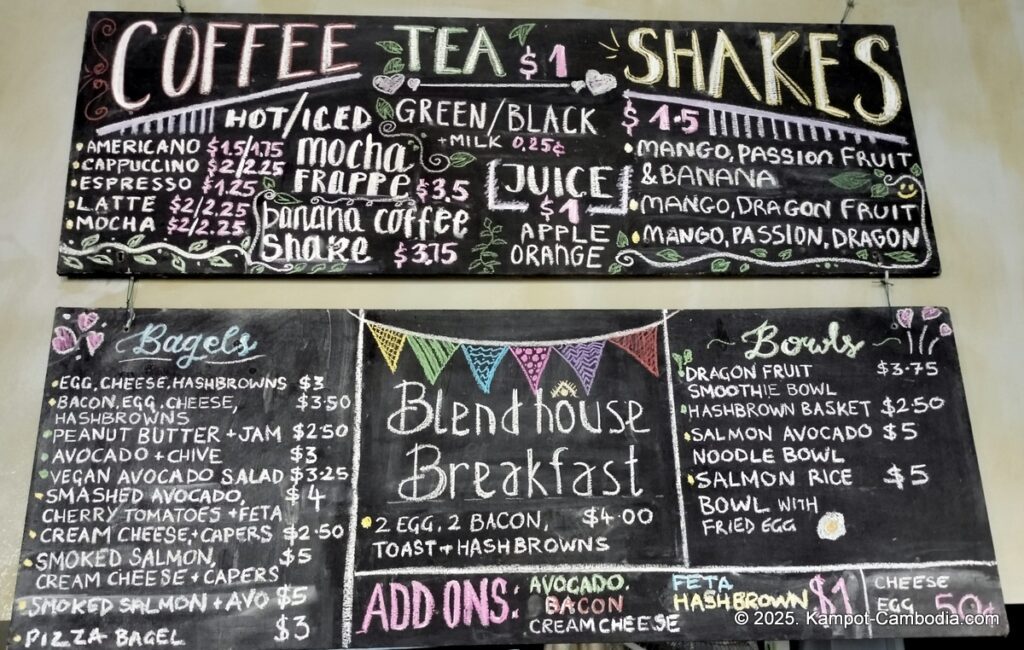 COFFEE
HOT/ICED
AMERICANO $1.5/1.75
CAPPUCCINO $2/2.25
ESPRESSO $1.25
LATTE $2/2.25
MOCHA $2/2.25
mocha
FRAPPE $3.5
banana coffee
shake $3.75
TEA $1
GREEN/BLACK
+MILK 0.25¢
JUICE
$1
APPLE
ORANGE
SHAKES
$1.5
MANGO, PASSION FRUIT
& BANANA
MANGO, DRAGON FRUIT
MANGO, PASSION, DRAGON
Bagels
EGG, CHEESE, HASHBROWNS $3
BACON, EGG, CHEESE, $3.50
HASHBROWNS
PEANUT BUTTER + JAM $2.50
AVOCADO + CHIVE $3
VEGAN AVOCADO SALAD $3.25
SMASHED AVOCADO, $4
CHERRY TOMATOES + FETA
CREAM CHEESE + CAPERS $2.50
SMOKED SALMON, $5
CREAM CHEESE + CAPERS
SMOKED SALMON + AVO $5
PIZZA BAGEL $3
Blendhouse
Breakfast
2 EGG, 2 BACON, $4.00
TOAST + HASHBROWNS
Bowls
DRAGON FRUIT $3.75
SMOOTHIE BOWL
HASHBROWN BASKET $2.50
SALMON AVOCADO $5
NOODLE BOWL
SALMON RICE $5
BOWL WITH
FRIED EGG
ADD ONS:
AVOCADO
BACON
CREAM CHEESE
FETA
HASHBROWN $1
CHEESE
EGG 50¢
© 2025. Kampot-Cambodia.com